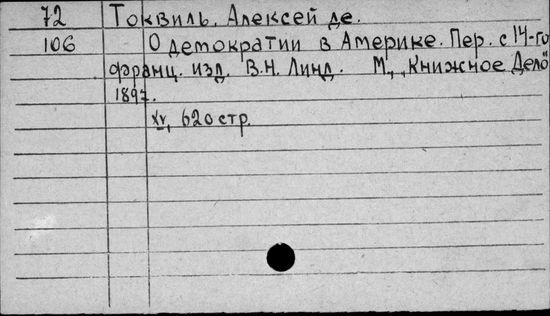 72 Токвиль, Алексей де.
106 О демократии в Америке. Пер. с 14-го
франц. изд. В.Н. Линд. М., „Книжное Дело"
1897.
XV, 620 стр.